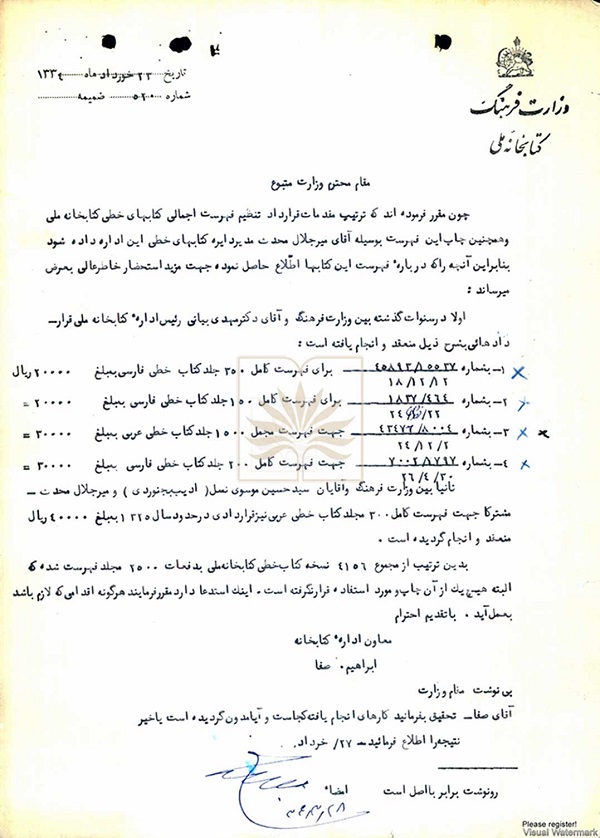 تاریخ ۲۲ خورداد ماه ۱۳۳۴
شماره ۵۲۰ ضمیمه
وزارت فرهنگ
کتابخانه ملی
مقام محترم وزارت متبوع
چون مقرر فرموده اند که ترتیب مقدمات قرارداد تنظیم فهرست اجمالی کتابهای خطی کتابخانه ملی
و همچنین چاپ این فهرست بوسیله آقای میرجلال محدث مدیر دایره کتابهای خطی این اداره داده شود
بنابراین آنچه راکه درباره فهرست این کتابها اطلاع حاصل نموده جهت مزید استحضار خاطرعالی بعرض
میرساند :
اولا درسنوات گذشته بین وزارت فرهنگ و آقای دکترمهدی بیانی رئیس اداره کتابخانه ملی قرار-
دادهائی بشرح ذیل منعقد و انجام یافته است :
۱- بشماره ۴۵۸۹۳/۵۵۳۷ برای فهرست کامل ۳۵۰ جلد کتاب خطی فارسی بمبلغ ۲۰۰۰۰ ریال
۱۸/۱۲/۲
۲- بشماره ۱۸۳۷/۴۶۴ برای فهرست کامل ۱۵۰ جلد کتاب خطی فارسی بمبلغ ۲۰۰۰۰ =
۲۴ /۲۲
۳- بشماره ۴۳۴۷۶/۸۰۰۴ جهت فهرست مجمل ۱۵۰۰ جلد کتاب خطی عربی بمبلغ ۳۰۰۰۰ =
۲۴/۱۲/۲
۴- بشماره ۷۰۰۲/۷۹۷ جهت فهرست کامل ۲۰۰ جلد کتاب خطی فارسی بمبلغ ۳۰۰۰۰ =
۲۶/۴/۳۰
ثانیا بین وزارت فرهنگ و آقایان سیدحسین موسوی نسل ( ادیب بجنوردی ) و میرجلال محدث -
مشترکا جهت فهرست کامل ۳۰۰ مجلد کتاب خطی عربی نیز قراردادی درحدود سال ۱۳۲۵ بمبلغ ۴۰۰۰۰ ریال
منعقد و انجام گردیده است .
بدین ترتیب از مجموع ۴۱۵۶ نسخه کتاب خطی کتابخانه ملی بدفعات ۲۵۰۰ مجلد فهرست شده که
البته هیچ یک از آن چاپ و مورد استفاده قرار نگرفته است . اینک استدعا دارد مقرر فرمایند هرگونه اقدامی که لازم باشد
بعمل آید . با تقدیم احترام
معاون اداره کتابخانه
ابراهیم . صفا
پی نوشت مقام وزارت
آقای صفا- تحقیق بفرمائید کارهای انجام یافته کجاست و آیا مدون گردیده است یا خیر
نتیجه را اطلاع فرمائید- ۲۷/ خرداد .
رونوشت برابر با اصل است امضاء
۳۴/۳/۲۸
Please register!
Visual Watermark